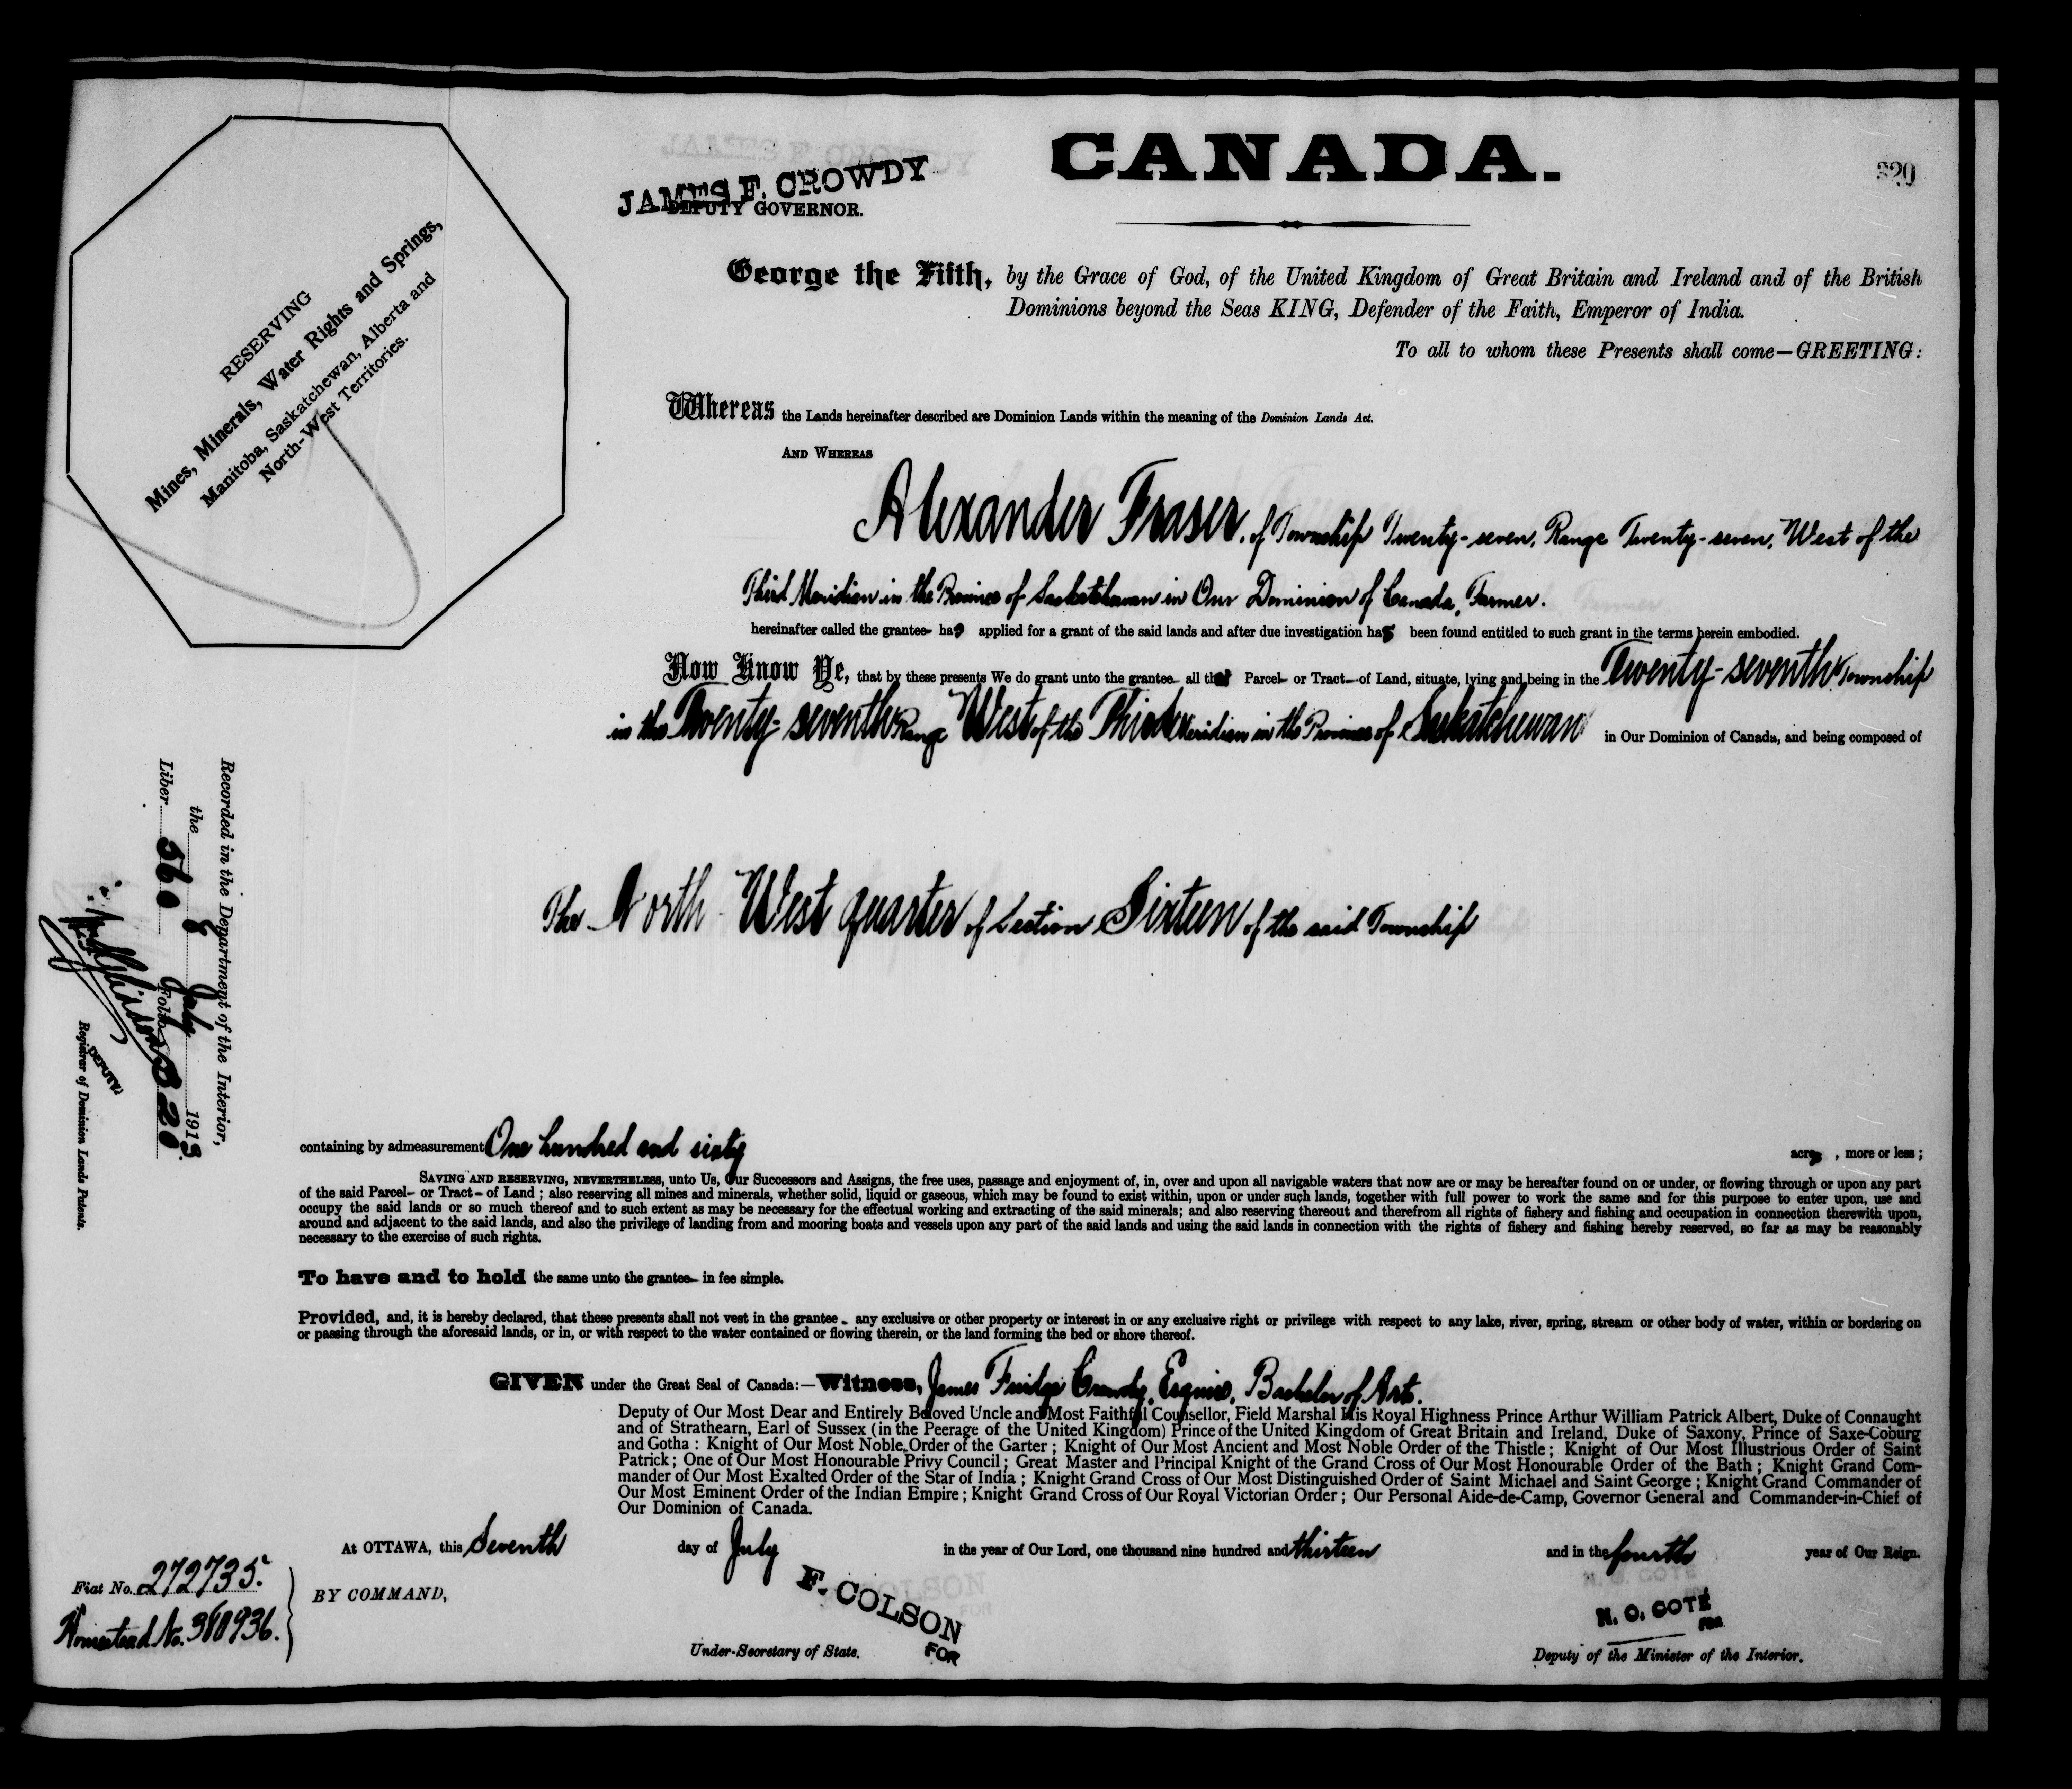 CANADA.
320
JAMES F. CROWDY
DEPUTY GOVERNOR.
RESERVING
Mines, Minerals, Water Rights and Springs,
Manitoba, Saskatchewan, Alberta and
North-West Territories.
George the Fifth, by the Grace of God, of the United Kingdom of Great Britain and Ireland and of the British
Dominions beyond the Seas KING, Defender of the Faith, Emperor of India.
To all to whom these Presents shall come—GREETING:
Whereas the Lands hereinafter described are Dominion Lands within the meaning of the Dominion Lands Act.
AND WHEREAS
Alexander Fraser, of Township Twenty-seven, Range Twenty-seven, West of the
Third Meridian in the Province of Saskatchewan in Our Dominion of Canada, Farmer.
hereinafter called the grantee- has applied for a grant of the said lands and after due investigation has been found entitled to such grant in the terms herein embodied.
Now Know Ye, that by these presents We do grant unto the grantee- all that Parcel- or Tract- of Land, situate, lying and being in the Twenty-seventh Township
in the Twenty-seventh Range West of the Third Meridian in the Province of Saskatchewan in Our Dominion of Canada, and being composed of
The North West quarter of Section Sixteen of the said Township
Recorded in the Department of the Interior,
the 8 July 1913.
Liber 560 Folio 320
DEPUTY
Registrar of Dominion Lands Patents.
containing by admeasurement One hundred and sixty acres, more or less;
SAVING AND RESERVING, NEVERTHELESS, unto Us, Our Successors and Assigns, the free uses, passage and enjoyment of, in, over and upon all navigable waters that now are or may be hereafter found on or under, or flowing through or upon any part
of the said Parcel- or Tract- of Land; also reserving all mines and minerals, whether solid, liquid or gaseous, which may be found to exist within, upon or under such lands, together with full power to work the same and for this purpose to enter upon, use and
occupy the said lands or so much thereof and to such extent as may be necessary for the effectual working and extracting of the said minerals; and also reserving thereout and therefrom all rights of fishery and fishing and occupation in connection therewith upon,
around and adjacent to the said lands, and also the privilege of landing from and mooring boats and vessels upon any part of the said lands and using the said lands in connection with the rights of fishery and fishing hereby reserved, so far as may be reasonably
necessary to the exercise of such rights.
To have and to hold the same unto the grantee- in fee simple.
Provided, and, it is hereby declared, that these presents shall not vest in the grantee- any exclusive or other property or interest in or any exclusive right or privilege with respect to any lake, river, spring, stream or other body of water, within or bordering on
or passing through the aforesaid lands, or in, or with respect to the water contained or flowing therein, or the land forming the bed or shore thereof.
GIVEN under the Great Seal of Canada:—Witness, James Fuidge Crowdy, Esquire, Bachelor of Arts.
Deputy of Our Most Dear and Entirely Beloved Uncle and Most Faithful Counsellor, Field Marshal His Royal Highness Prince Arthur William Patrick Albert, Duke of Connaught
and of Strathearn, Earl of Sussex (in the Peerage of the United Kingdom) Prince of the United Kingdom of Great Britain and Ireland, Duke of Saxony, Prince of Saxe-Coburg
and Gotha: Knight of Our Most Noble Order of the Garter; Knight of Our Most Ancient and Most Noble Order of the Thistle; Knight of Our Most Illustrious Order of Saint
Patrick; One of Our Most Honourable Privy Council; Great Master and Principal Knight of the Grand Cross of Our Most Honourable Order of the Bath; Knight Grand Com-
mander of Our Most Exalted Order of the Star of India; Knight Grand Cross of Our Most Distinguished Order of Saint Michael and Saint George; Knight Grand Commander of
Our Most Eminent Order of the Indian Empire; Knight Grand Cross of Our Royal Victorian Order; Our Personal Aide-de-Camp, Governor General and Commander-in-Chief of
Our Dominion of Canada.
At OTTAWA, this Seventh day of July in the year of Our Lord, one thousand nine hundred and thirteen and in the fourth year of Our Reign.
Fiat No. 272735.
Homestead No.
BY COMMAND,
F. COLSON
FOR
Under-Secretary of State.
N. O. COTÉ
FOR
Deputy of the Minister of the Interior.